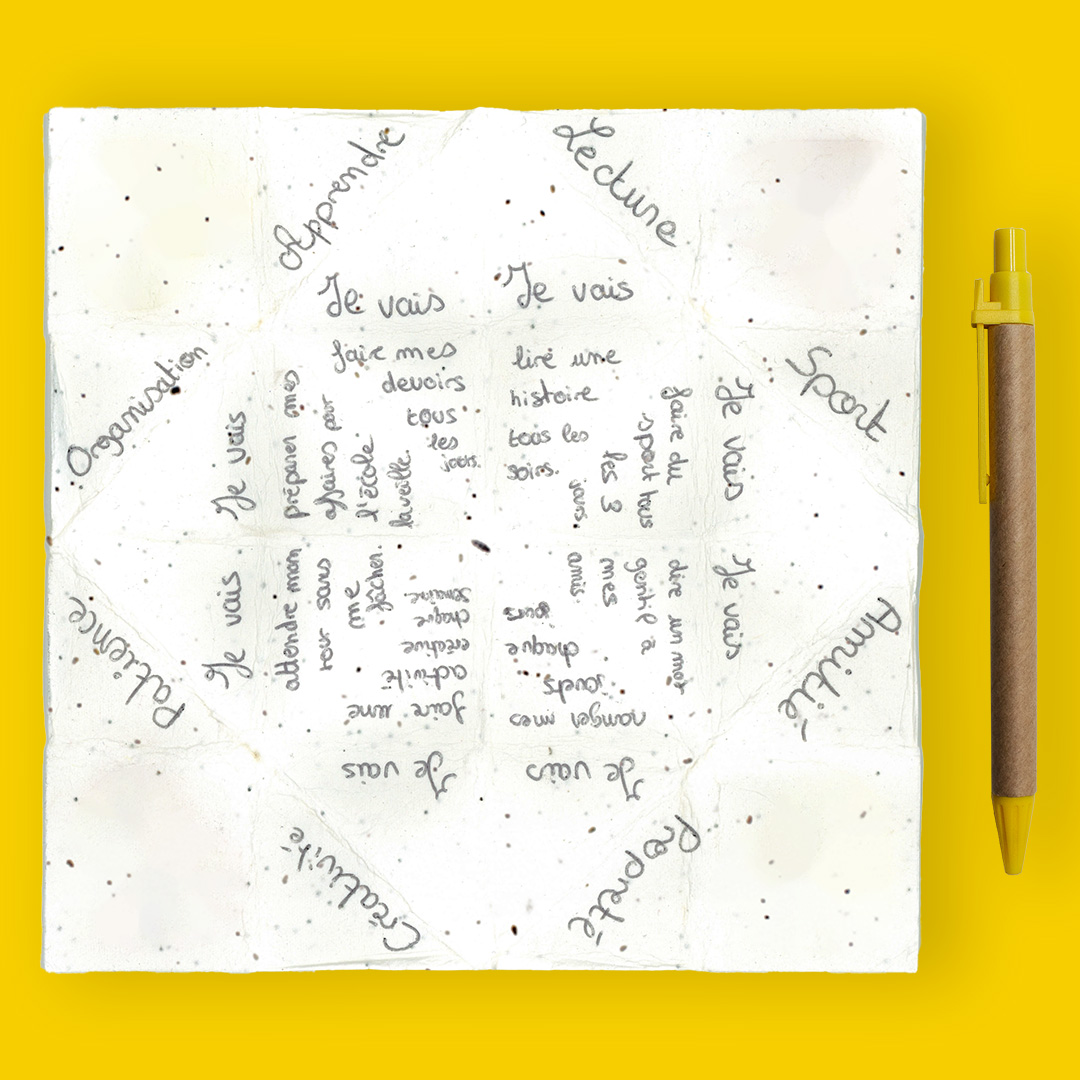 Apprendre
Je vais
faire mes
devoirs
tous
les
jours.
Lecture
Je vais
lire une
histoire
tous les
soirs.
Sport
Je vais
faire du
sport tous
les 3
jours
Amitié
Je vais
dire un mot
gentil à
mes
amis.
Propreté
Je vais
ranger mes
jouets
chaque
jours
Créativité
Je vais
faire une
activité
créative
chaque
semaine
Patience
Je vais
attendre mon
tour sans
me
fâcher.
Organisation
Je vais
préparer mes
affaires pour
l'école
la veille.